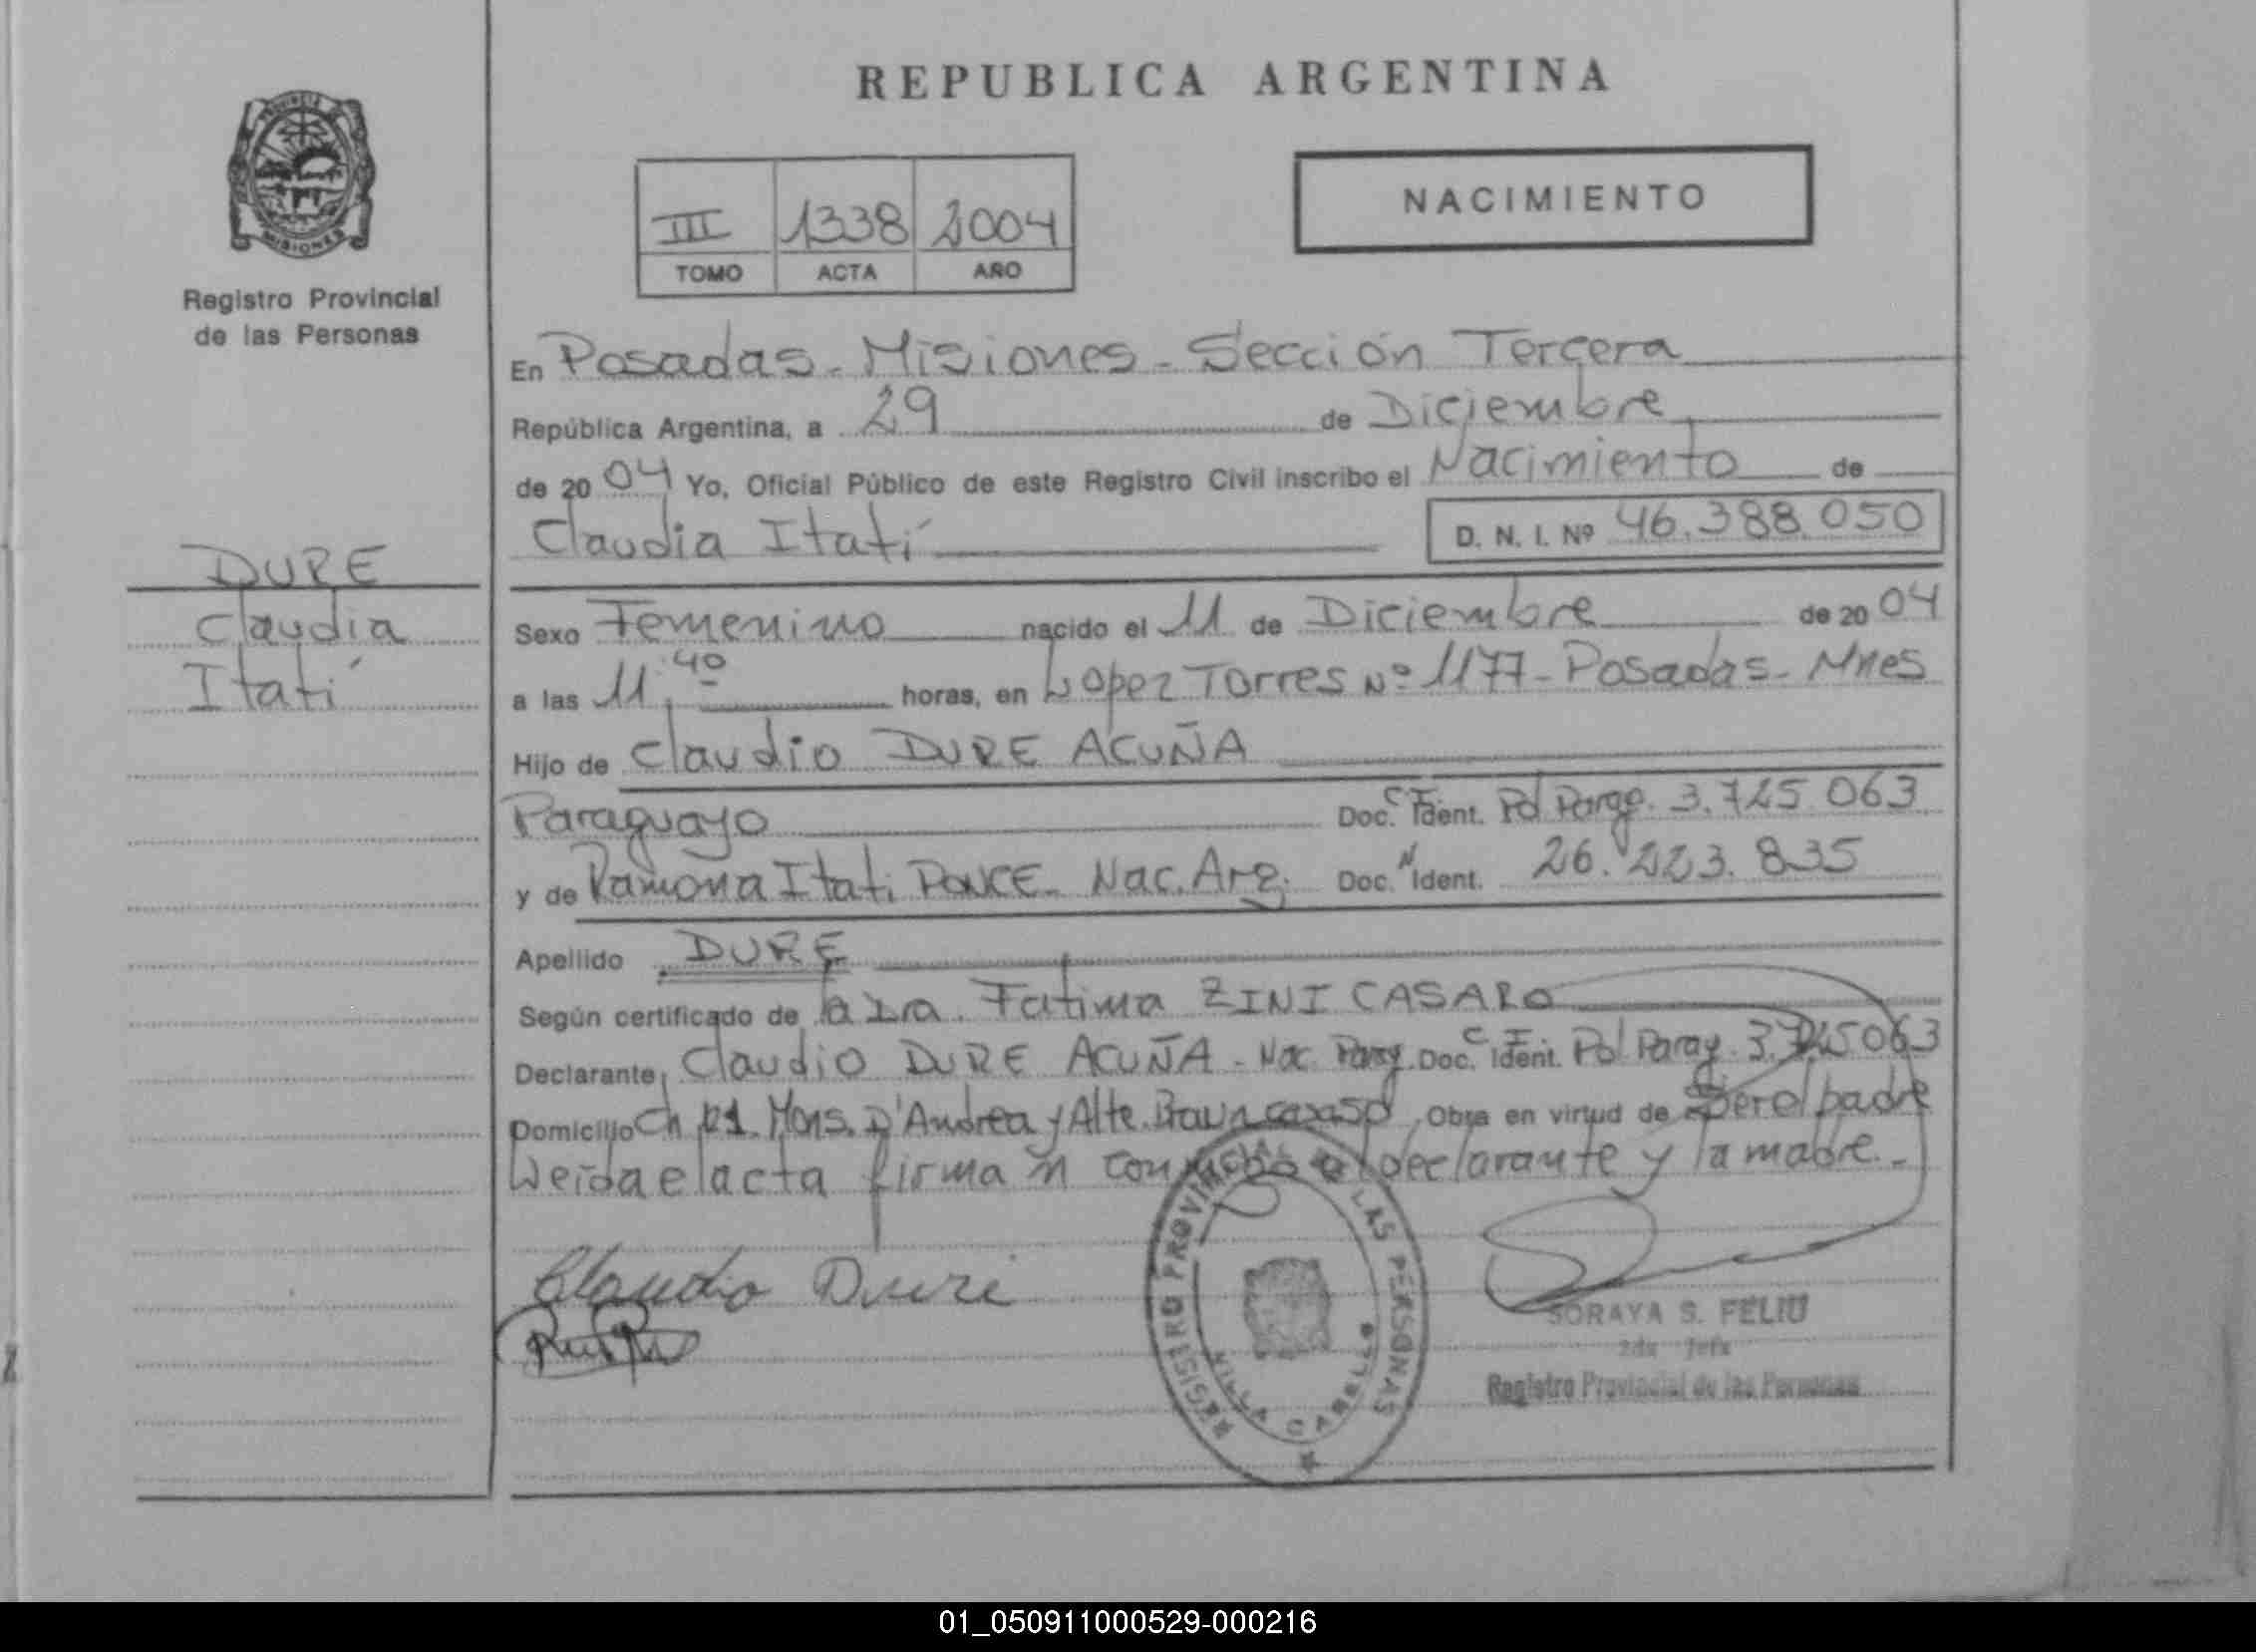 REPUBLICA ARGENTINA
PROVINCIA
MISIONES
Registro Provincial
de las Personas
NACIMIENTO
III 1338 2004
TOMO ACTA AÑO
En Posadas - Misiones - Sección Tercera
República Argentina, a 29 de Diciembre
de 2004 Yo, Oficial Público de este Registro Civil inscribo el Nacimiento de
Claudia Itatí
D. N. I. Nº 46.388.050
DURE
Claudia
Itatí
Sexo Femenino nacido el 11 de Diciembre de 2004
a las 11:40 horas, en Lopez Torres Nº 1177 - Posadas - Mnes
Hijo de Claudio DURE ACUÑA
Paraguayo Doc. C I Ident. Pol Parag. 3.725.063
y de Ramona Itati PONCE - Nac. Arg. Doc. N Ident. 26.223.835
Apellido DURE
Según certificado de la Dra. Fatima ZINI CASARO
Declarante Claudio DURE ACUÑA - Nac. Parag. Doc. C I Ident. Pol Parag. 3.725063
Domicilio Ch 121. Mons. D'Andrea y Alte. Brawn casa 50 Obra en virtud de Ser el padre
Leida el acta firman conmigo el declarante y la madre.-
Claudio Dure
REGISTRO PROVINCIAL DE LAS PERSONAS
VILLA CABELLO
SORAYA S. FELIU
2da Jefa
Registro Provincial de las Personas
01_050911000529-000216